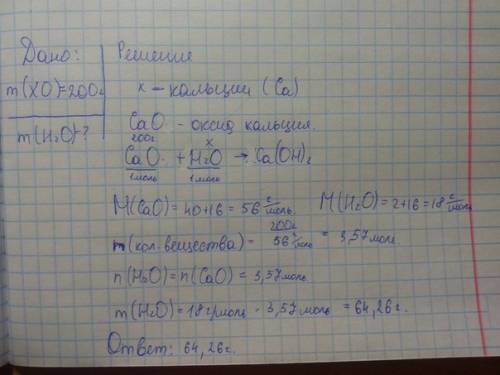 Дано:
m(XO)=200г
m(H₂O)-?
Решение
x - кальций (Ca)
CaO - оксид кальция.
200г
x
CaO + H₂O → Ca(OH)₂
1моль 1моль
M(CaO) = 40+16 = 56 г/моль. M(H₂O) = 2+16 = 18 г/моль
n(кол. вещества) = 200г / 56 г/моль = 3,57 моль
n(H₂O) = n(CaO) = 3,57 моль
m(H₂O) = 18 г/моль · 3,57 моль = 64,26 г.
Ответ: 64,26 г.